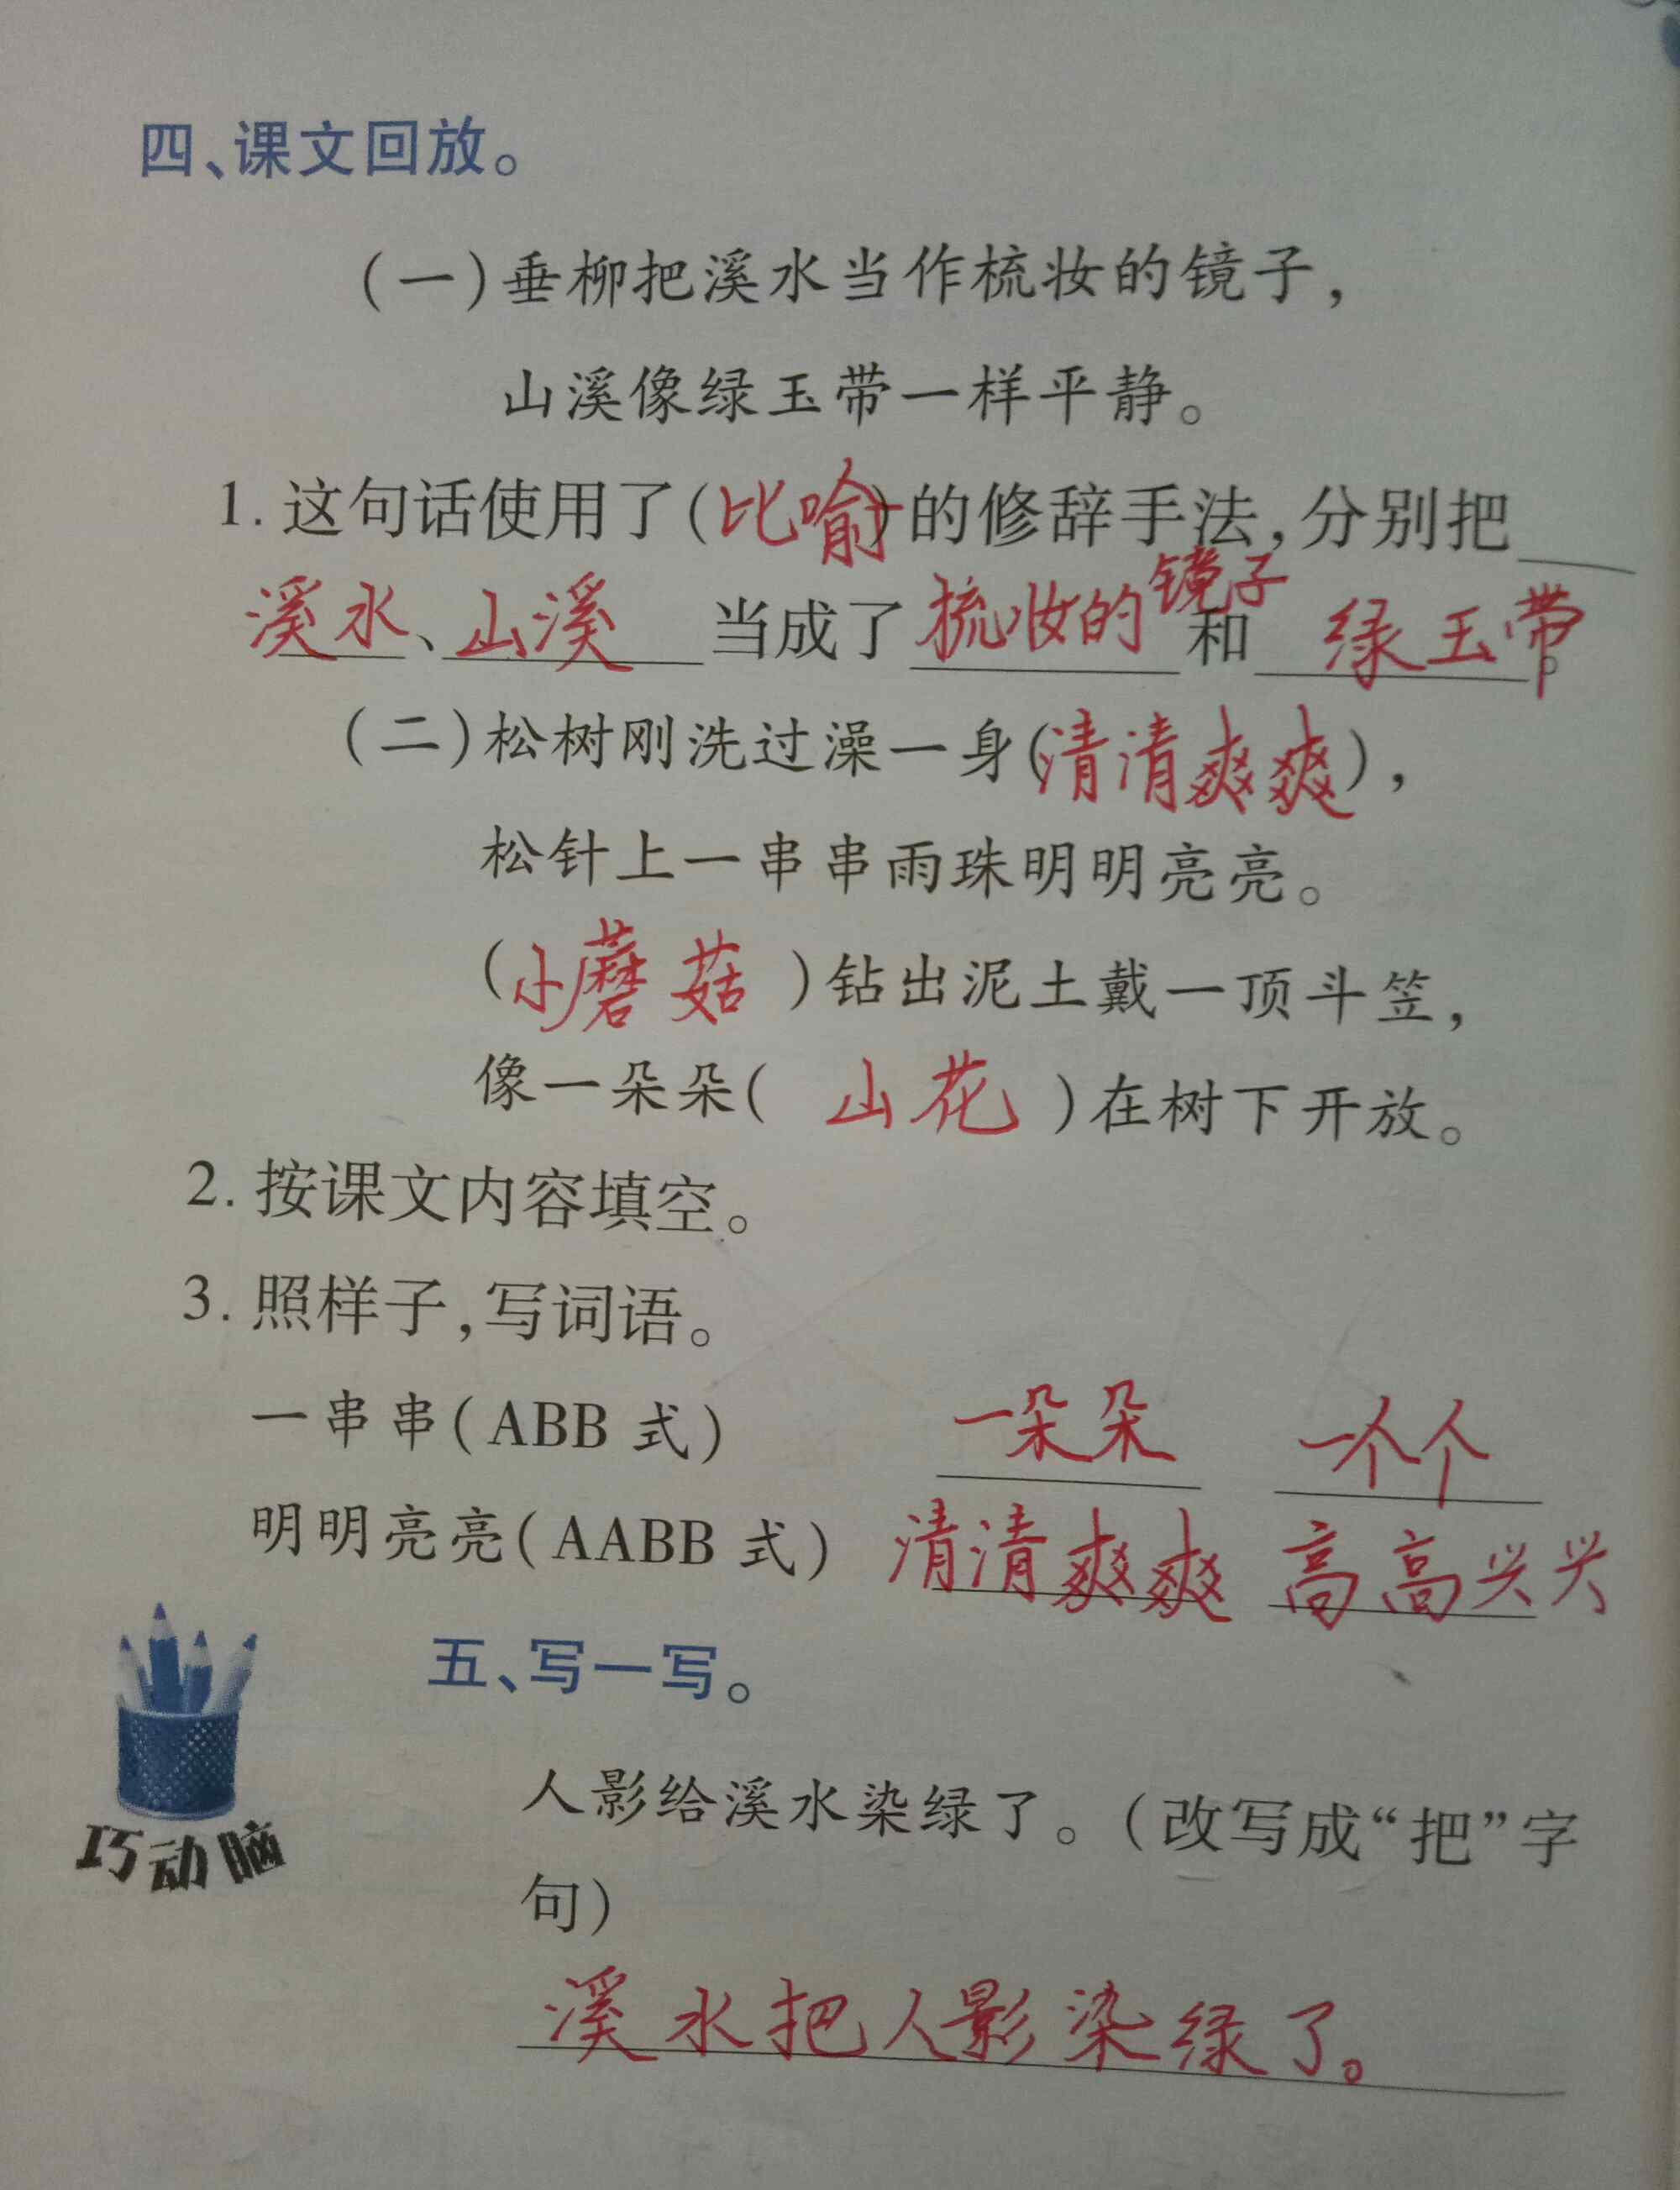 四、课文回放。
(一)垂柳把溪水当作梳妆的镜子，
山溪像绿玉带一样平静。
1. 这句话使用了(比喻)的修辞手法，分别把
溪水、山溪 当成了 梳妆的镜子 和 绿玉带。
(二)松树刚洗过澡一身(清清爽爽)，
松针上一串串雨珠明明亮亮。
(小蘑菇)钻出泥土戴一顶斗笠，
像一朵朵( 山花 )在树下开放。
2. 按课文内容填空。
3. 照样子，写词语。
一串串(ABB 式) 一朵朵 一个个
明明亮亮(AABB 式) 清清爽爽 高高兴兴
五、写一写。
人影给溪水染绿了。(改写成“把”字
句)
巧动脑
溪水把人影染绿了。